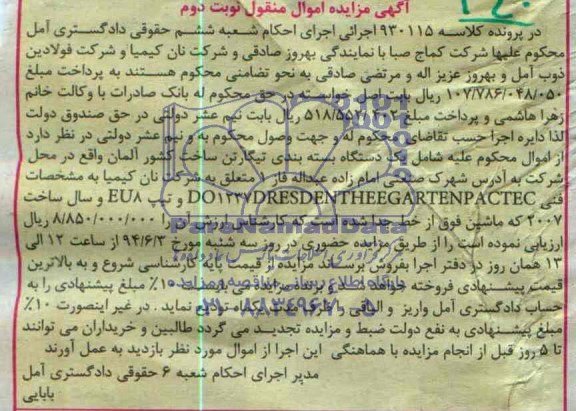 آگهی مزایده اموال منقول نوبت دوم
در پرونده کلاسه ۹۳۰۱۱۵ اجرائی اجرای احکام شعبه ششم حقوقی دادگستری آمل
محکوم علیها شرکت کماج صبا با نمایندگی بهروز صادقی و شرکت نان کیمیا و شرکت فولادین
ذوب آمل و بهروز عزیز اله و مرتضی صادقی به نحو تضامنی محکوم هستند به پرداخت مبلغ
۱۰۷/۷۸۶/۰۴۸/۰۵۰ ریال بابت اصل خواسته در حق محکوم له بانک صادرات با وکالت خانم
زهرا هاشمی و پرداخت مبلغ ریال بابت نیم عشر دولتی در حق صندوق دولت
لذا دایره اجرا حسب تقاضای محکوم له و جهت وصول محکوم به و نیم عشر دولتی در نظر دارد
از اموال محکوم علیه شامل یک دستگاه بسته بندی تیکارتن ساخت کشور آلمان واقع در محل
شرکت به آدرس شهرک صنعتی امام زاده عبداله فاز متعلق به شرکت نان کیمیا به مشخصات
فنی DO۱۲۳۷DRESDENTHEEGARTENPACTEC و تیپ EU۸ و سال ساخت
۲۰۰۷ که ماشین فوق از خط جدا شده است که کارشناس ارزش آن را ۸/۸۵۰/۰۰۰/۰۰۰ ریال
ارزیابی نموده است را از طریق مزایده حضوری در روز سه شنبه مورخ ۹۴/۶/۳ از ساعت ۱۲ الی
۱۳ همان روز در دفتر اجرا بفروش برساند مزایده از قیمت پایه کارشناسی شروع و به بالاترین
قیمت پیشنهادی فروخته خواهد شد برنده مزایده می بایست ۱۰٪ مبلغ پیشنهادی را به
حساب دادگستری آمل واریز و الباقی را ظرف مدت یکماه تودیع نماید . در غیر اینصورت ۱۰٪
مبلغ پیشنهادی به نفع دولت ضبط و مزایده تجدید می گردد طالبین و خریداران می توانند
تا ۵ روز قبل از انجام مزایده با هماهنگی این اجرا از اموال مورد نظر بازدید به عمل آورند
مدیر اجرای احکام شعبه ۶ حقوقی دادگستری آمل
بابایی
ParsNamadData
۰۲۱-۸۸۳۴۹۶۷۰-۵